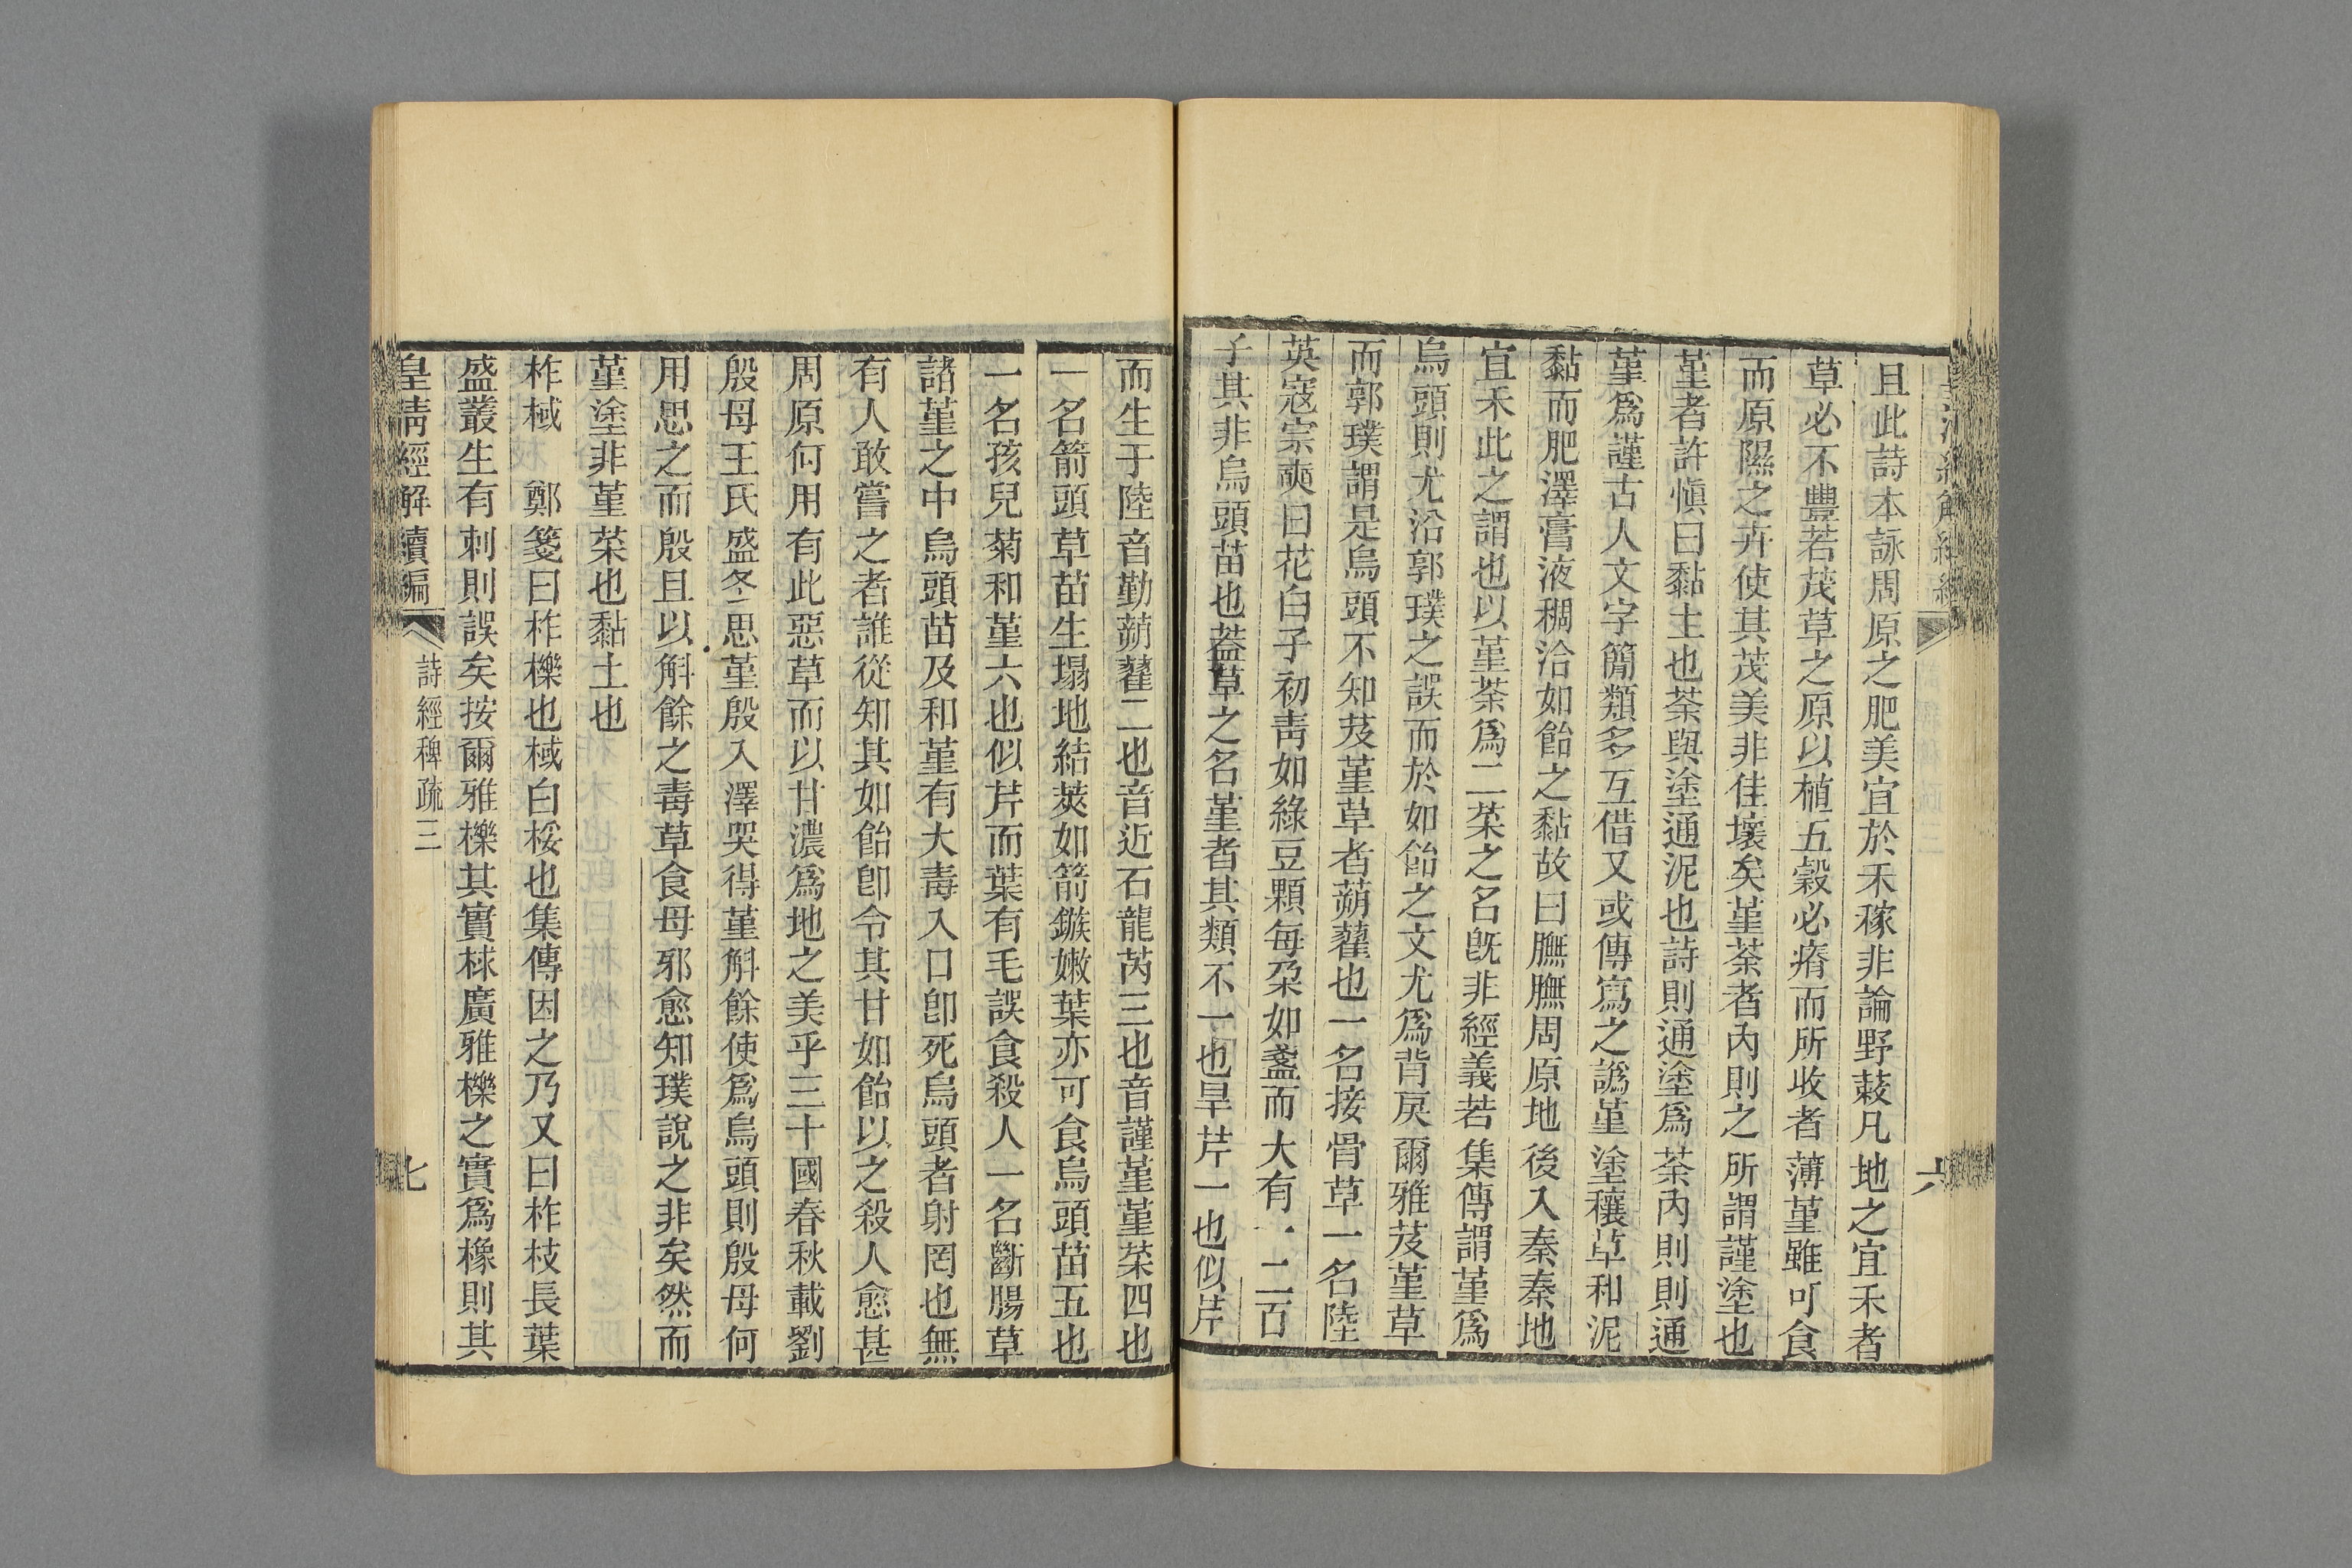 且此詩本詠周原之肥美宜於禾稼非論野蔌凡地之宜禾者
草必不豐若茂草之原以植五穀必瘠而所收者薄堇雖可食
而原隰之卉使其茂美非佳壤矣堇荼者內則之所謂謹塗也
堇者許愼曰黏土也荼與塗通泥也詩則通塗爲荼內則則通
堇爲謹古人文字簡類多互借又或傳寫之譌堇塗穰草和泥
黏而肥澤膏液稠洽如飴之黏故曰膴膴周原地後入秦秦地
宜禾此之謂也以堇荼爲二菜之名旣非經義若集傳謂堇爲
烏頭則尤沿郭璞之誤而於如飴之文尤爲背戾爾雅芨堇草
而郭璞謂是烏頭不知芨堇草者蒴藋也一名接骨草一名陸
英寇宗奭曰花白子初靑如綠豆顆每朶如盞而大有一二百
子其非烏頭苗也葢草之名堇者其類不一也旱芹一也似芹
六
而生于陸音勤蒴藋二也音近石龍芮三也音謹堇堇菜四也
一名箭頭草苗生塌地結莢如箭鏃嫩葉亦可食烏頭苗五也
一名孩兒菊和堇六也似芹而葉有毛誤食殺人一名斷腸草
諸堇之中烏頭苗及和堇有大毒入口卽死烏頭者射罔也無
有人敢嘗之者誰從知其如飴卽令其甘如飴以之殺人愈甚
周原何用有此惡草而以甘濃爲地之美乎三十國春秋載劉
殷母王氏盛冬思堇殷入澤哭得堇斛餘使爲烏頭則殷母何
用思之而殷且以斛餘之毒草食母邪愈知璞說之非矣然而
堇塗非堇菜也黏土也
柞棫　鄭箋曰柞櫟也棫白桵也集傳因之乃又曰柞枝長葉
盛叢生有刺則誤矣按爾雅櫟其實梂廣雅櫟之實爲橡則其
皇淸經解續編　詩經稗疏三　七